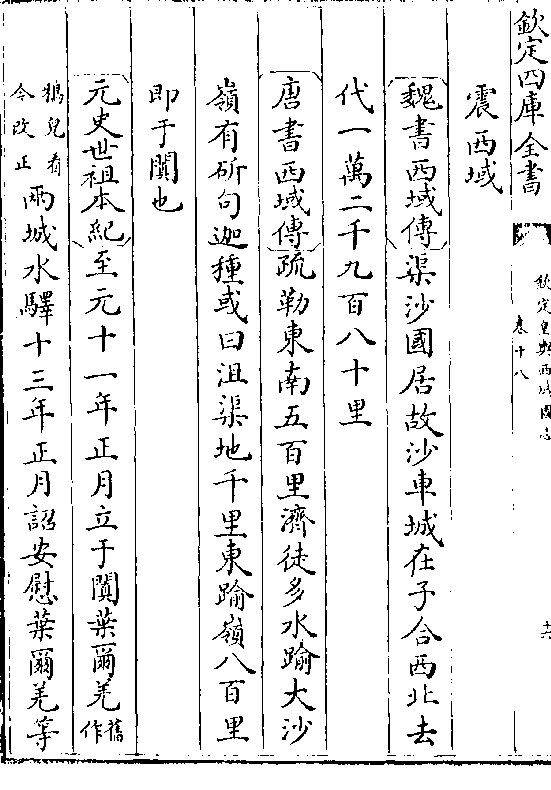 欽定四庫全書
欽定皇輿西域圖志
卷十八
十六
震西域
魏書西域傳渠沙國居故沙車城在子合西北去
代一萬二千九百八十里
唐書西域傳疏勒東南五百里濟徒多水踰大沙
嶺有斫句迦種或曰沮渠地千里東踰嶺八百里
即于闐也
元史世祖本紀至元十一年正月立于闐葉爾羌舊作
鴉兒看今改正兩城水驛十三年正月詔安慰葉爾羌等